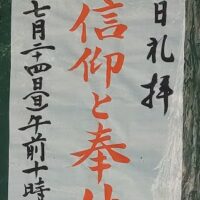 日礼拝
信仰と奉仕
七月二十四日㊐午前十時